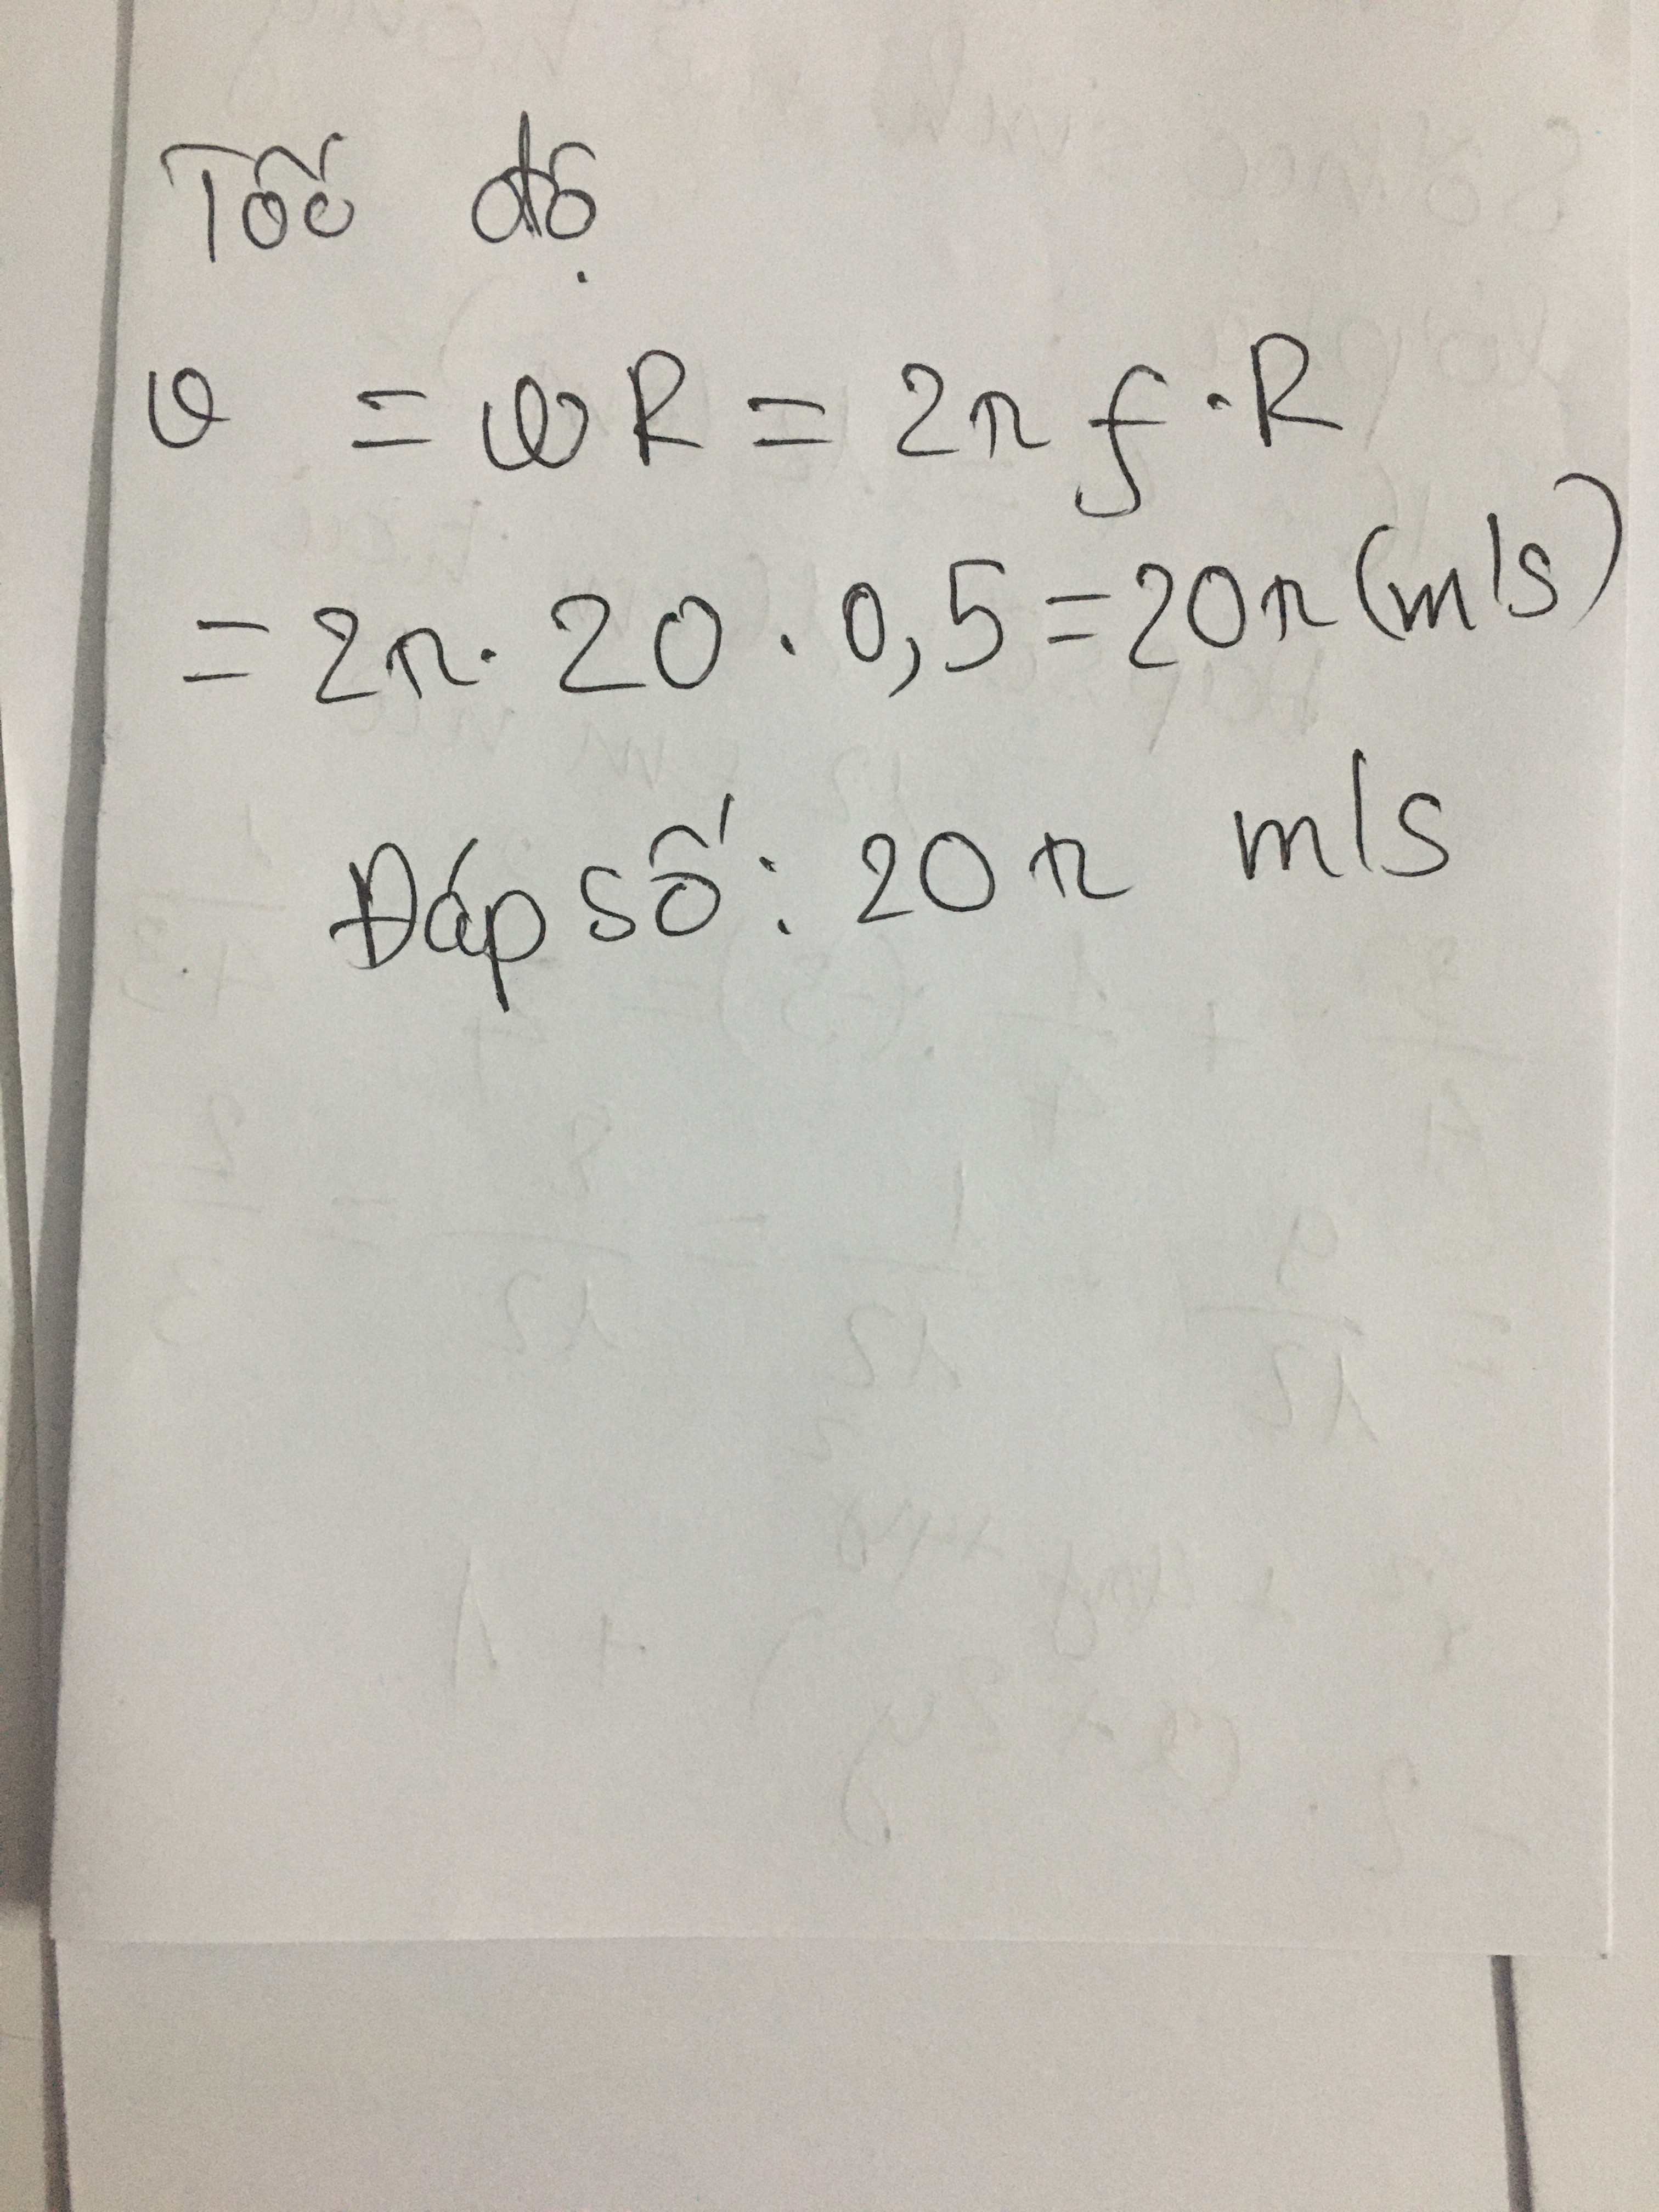 Tốc độ
v = ωR = 2π f · R
= 2π · 20 · 0,5 = 20π (m/s)
Đáp số: 20π m/s